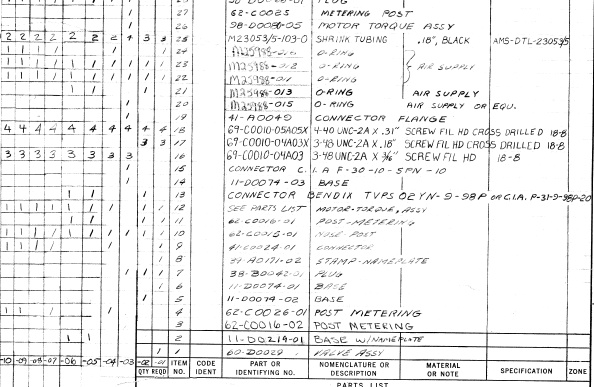 27 62-C0025 METERING POST
26 98-D0086-05 MOTOR TORQUE ASSY
2 2 2 2 2 2 2 4 3 3 25 M23053/5-103-0 SHRINK TUBING .18", BLACK AMS-DTL-23053/5
24 O-RING
23 O-RING AIR SUPPLY
22 O-RING
21 M25988-013 O-RING AIR SUPPLY
20 M25988-015 O-RING AIR SUPPLY OR EQU.
19 41-A0049 CONNECTOR FLANGE
4 4 4 4 4 4 4 4 4 4 18 69-C0010-05A05X 4-40 UNC-2A X .31" SCREW FIL HD CROSS DRILLED 18-8
3 3 17 69-C0010-04A03X 3-48 UNC-2A X .18" SCREW FIL HD CROSS DRILLED 18-8
3 3 3 3 3 3 3 3 16 69-C0010-04A03 3-48 UNC-2A X 3/16" SCREW FIL HD 18-8
15 CONNECTOR C.I.A F-30-10-5PN-10
14 11-D0074-03 BASE
1 1 13 CONNECTOR BENDIX TVPS 02YN-9-98P OR C.I.A. P-31-9-98P-20
12 SEE PARTS LIST MOTOR-TORQUE, ASSY
11 62-C0016-01 POST-METERING
10 62-C0015-01 NOSE POST
9 41-C0024-01 CONNECTOR
8 39-A0171-02 STAMP-NAMEPLATE
7 38-B0042-01 PLUG
6 11-D0074-01 BASE
5 11-D0074-02 BASE
4 62-C0026-01 POST METERING
3 62-C0016-02 POST METERING
1 1 2 11-D0219-01 BASE W/NAMEPLATE
1 1 60-D0029 VALVE ASSY
-10 -09 -08 -07 -06 -05 -04 -03 -02 -01 ITEM NO. CODE IDENT PART OR IDENTIFYING NO. NOMENCLATURE OR DESCRIPTION MATERIAL OR NOTE SPECIFICATION ZONE
QTY REQD
PARTS LIST